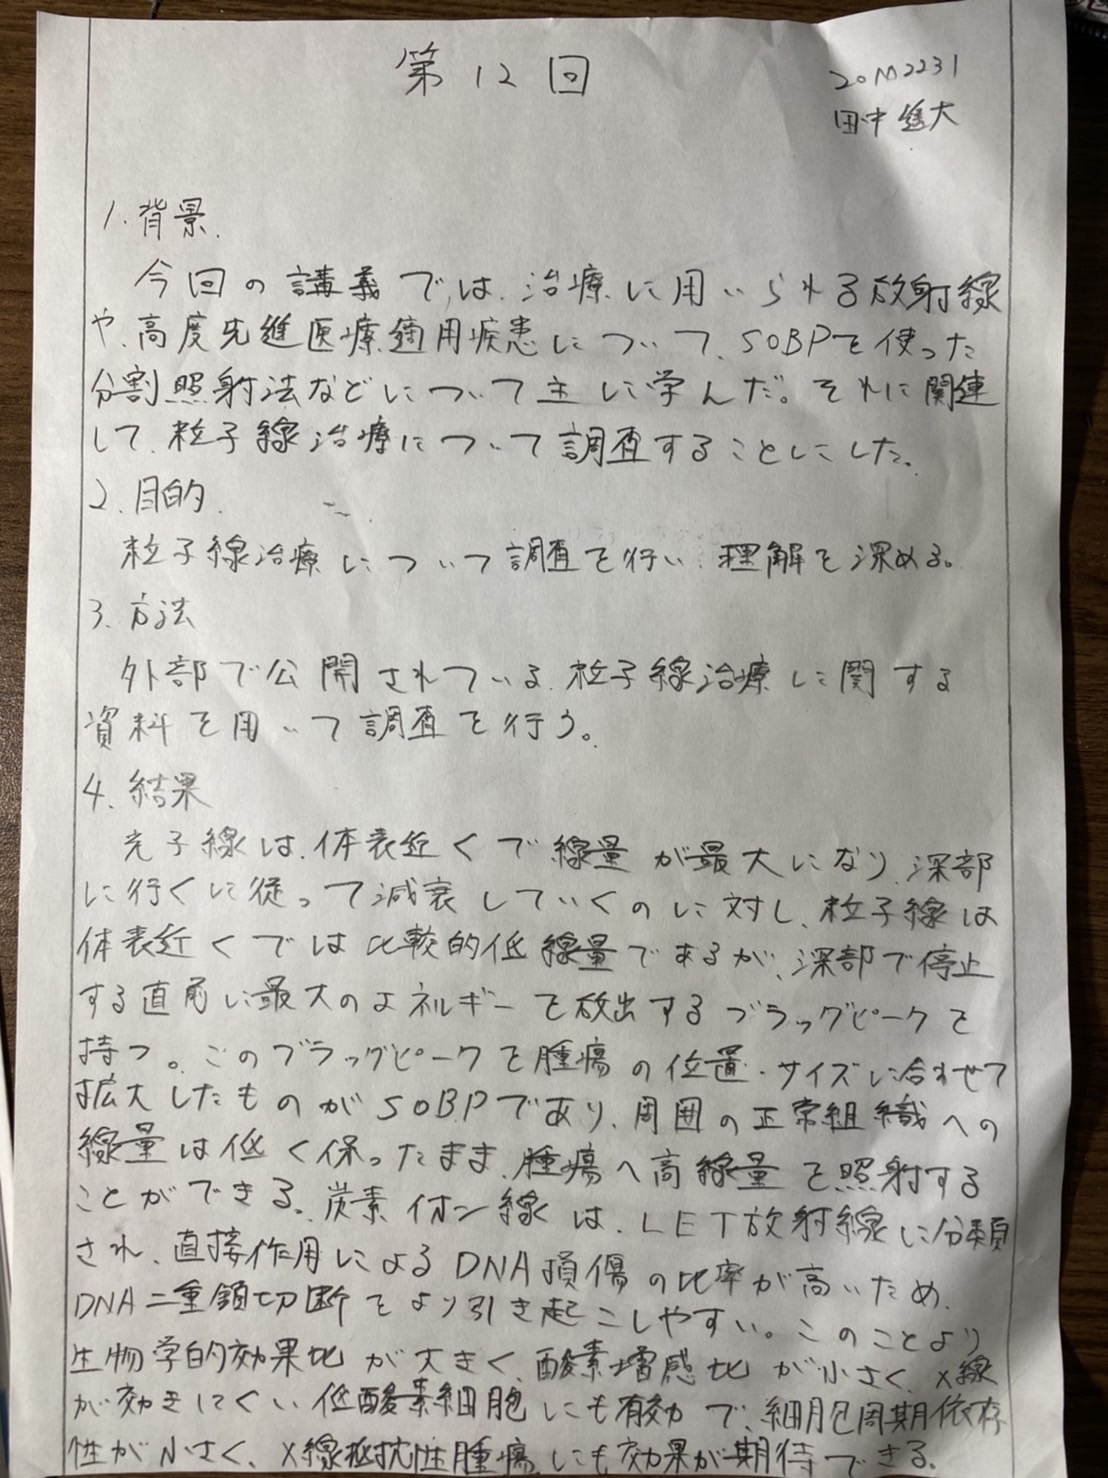 第12回
20M2231
田中 大
1. 背景.
今回の講義では、治療に用いられる放射線
や、高度先進医療適用疾患について、SOBPを使った
分割照射法などについて主に学んだ。それに関連
して、粒子線治療について調査することにした。
2. 目的.
粒子線治療について調査を行い、理解を深める。
3. 方法
外部で公開されている、粒子線治療に関する
資料を用いて調査を行う。
4. 結果
光子線は、体表近くで線量が最大になり、深部
に行くに従って減衰していくのに対し、粒子線は
体表近くでは比較的低線量であるが、深部で停止
する直前に最大のエネルギーを放出するブラッグピークを
持つ。このブラッグピークを腫瘍の位置・サイズに合わせて
拡大したものがSOBPであり、周囲の正常組織への
線量は低く保ったまま、腫瘍へ高線量を照射する
ことができる。炭素イオン線は、LET放射線に分類
され、直接作用によるDNA損傷の比率が高いため、
DNA二重鎖切断をより引き起こしやすい。このことより
生物学的効果比が大きく、酸素増感比が小さく、X線
が効きにくい低酸素細胞にも有効で、細胞周期依存
性が小さく、X線抵抗性腫瘍にも効果が期待できる。